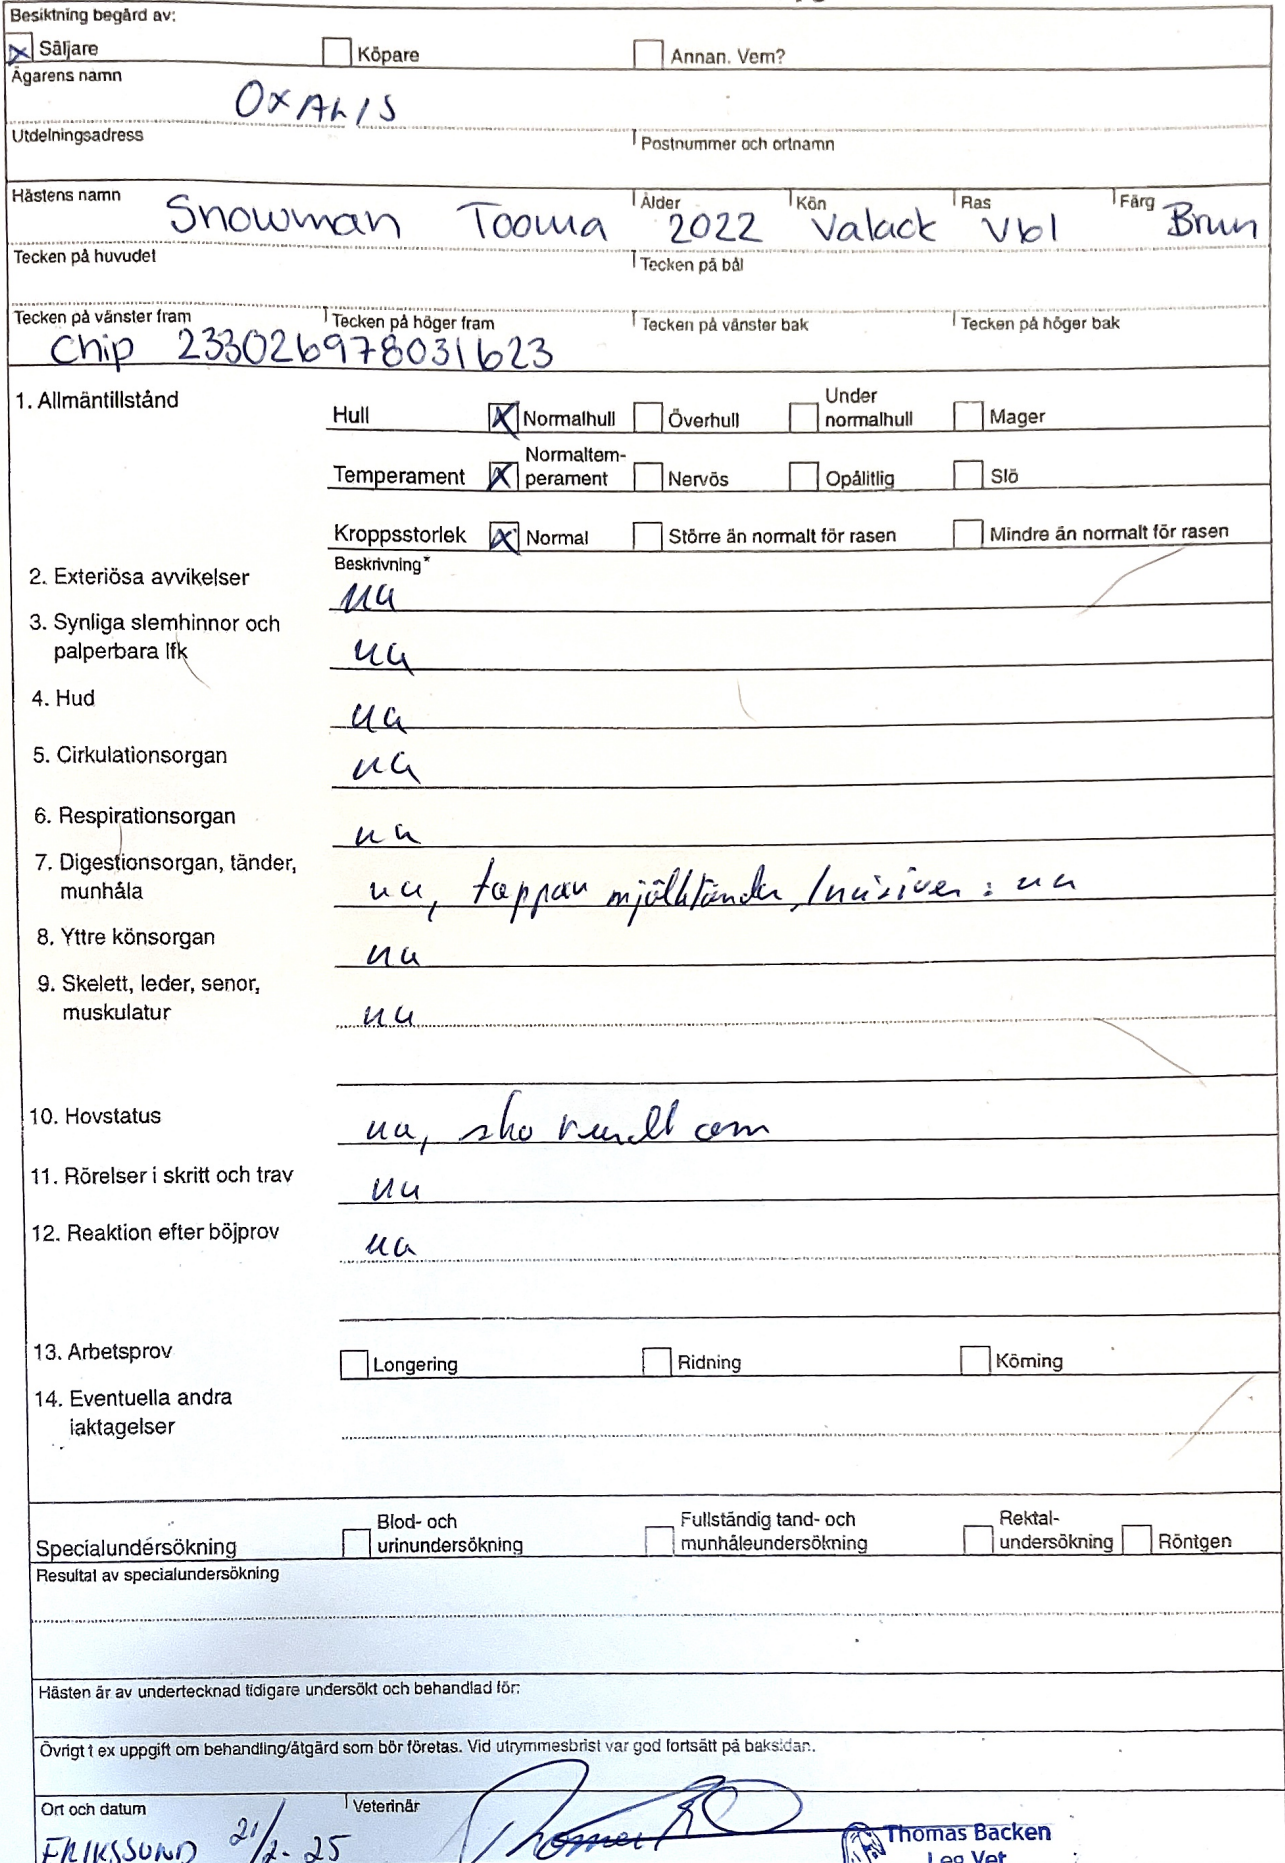 Besiktning begärd av:
x Säljare Köpare Annan. Vem?
Ägarens namn
OXALIS
Utdelningsadress Postnummer och ortnamn
Hästens namn Ålder Kön Ras Färg
Snowman Tooma 2022 Valack Vbl Brun
Tecken på huvudet Tecken på bål
Tecken på vänster fram Tecken på höger fram Tecken på vänster bak Tecken på höger bak
Chip 233026978031623
1. Allmäntillstånd
Hull x Normalhull Överhull Under normalhull Mager
Temperament x Normaltem-perament Nervös Opålitlig Slö
Kroppsstorlek x Normal Större än normalt för rasen Mindre än normalt för rasen
Beskrivning*
2. Exteriösa avvikelser ua
3. Synliga slemhinnor och
palperbara lfk ua
4. Hud ua
5. Cirkulationsorgan ua
6. Respirationsorgan ua
7. Digestionsorgan, tänder,
munhåla ua, tappar mjölktänder, Incisiver: ua
8. Yttre könsorgan ua
9. Skelett, leder, senor,
muskulatur ua
10. Hovstatus ua, sko rundt om
11. Rörelser i skritt och trav ua
12. Reaktion efter böjprov ua
13. Arbetsprov Longering Ridning Körning
14. Eventuella andra
iaktagelser
Specialundersökning Blod- och urinundersökning Fullständig tand- och munhåleundersökning Rektal-undersökning Röntgen
Resultat av specialundersökning
Hästen är av undertecknad tidigare undersökt och behandlad för:
Övrigt t ex uppgift om behandling/åtgärd som bör företas. Vid utrymmesbrist var god fortsätt på baksidan.
Ort och datum Veterinär
ERIKSSUND 21/2-25 Thomas Backen
Leg Vet